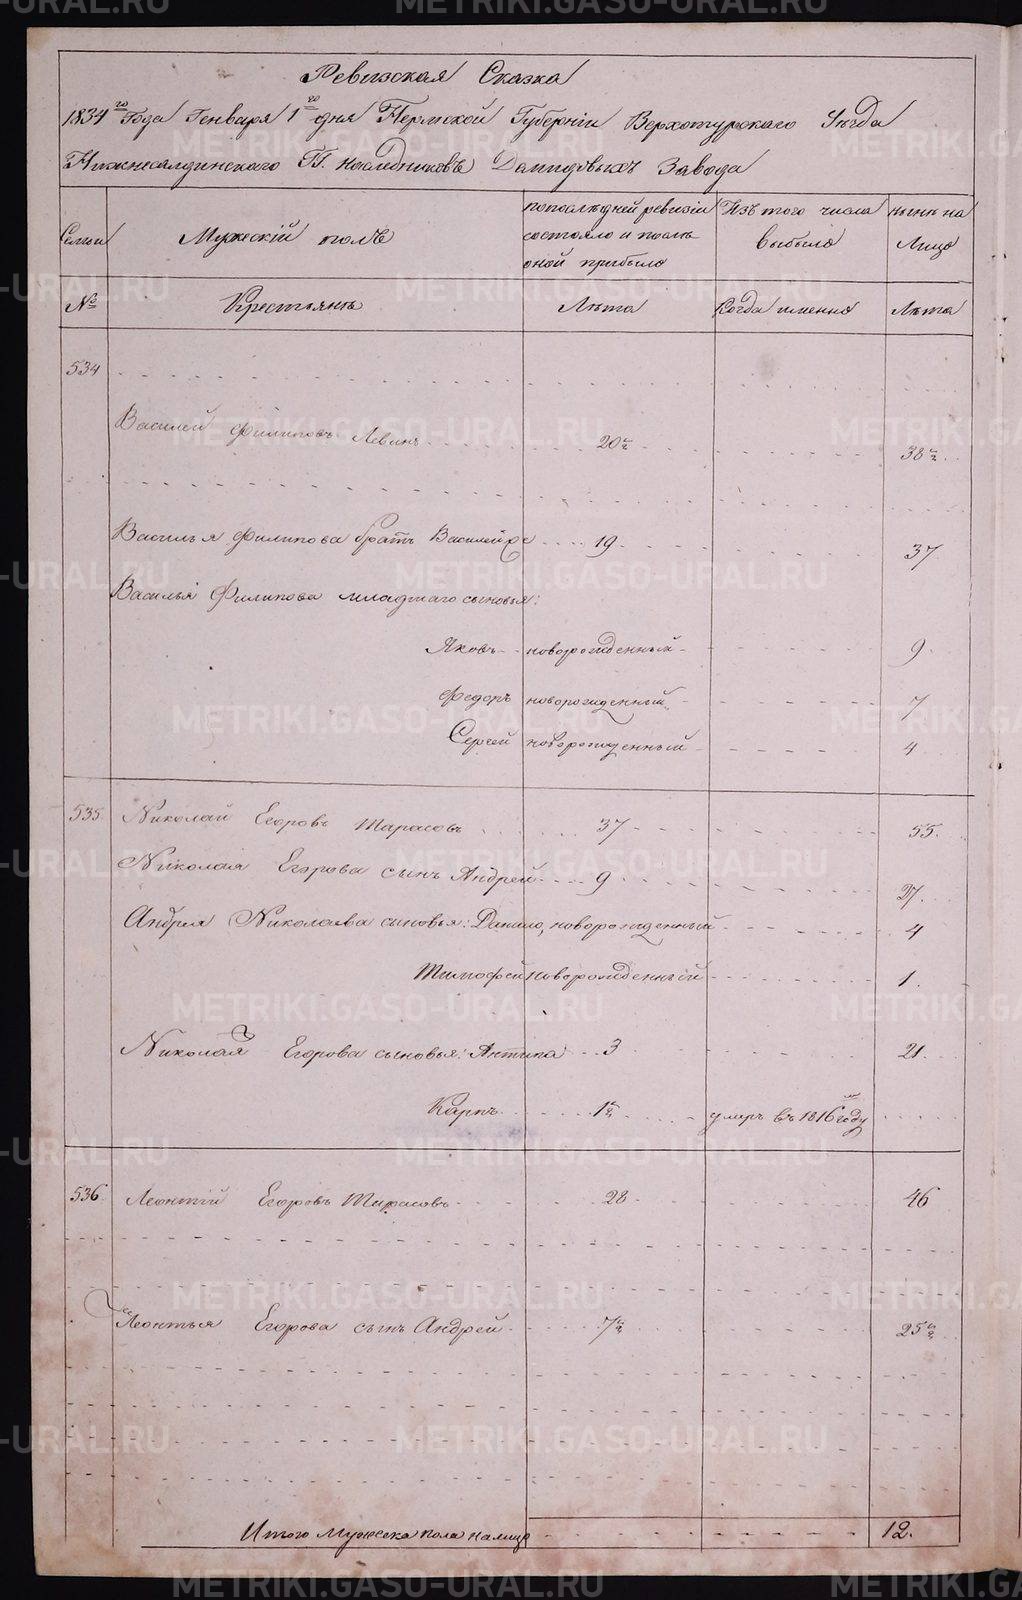 Ревизская Сказка
1834го года Генваря 1го дня Пермской Губернiи Верхотурскаго Уѣзда
Нижнесалдинскаго ГГ. наслѣдниковъ Демидовыхъ Завода
Семьи
Мужескiй полъ
по послѣдней ревизiи состояло и послѣ оной прибыло
Изъ того числа выбыло
нынѣ на Лицо
№
Крестьянъ
Лѣта
Когда именно
Лѣта
534
Василей Филиповъ Левинъ 20½ 38½
Василья Филипова братъ Василей же 19 37
Василья Филипова младшаго сыновья:
Яковъ новорожденный 9
Федоръ новорожденный 7
Сергей новорожденный 4
535 Николай Егоровъ Тарасовъ 37 55.
Николая Егорова сынъ Андрей 9 27.
Андрея Николаева сыновья: Данило, новорожденный 4
Тимофей новорожденный 1.
Николая Егорова сыновья: Антипа 3 21.
Карпъ 1½ умеръ въ 1816м году
536 Леонтiй Егоровъ Тарасовъ 28 46
Леонтья Егорова сынъ Андрей 7½ 25½
Итого мужеска пола налицо 12.
METRIKI.GASO-URAL.RU